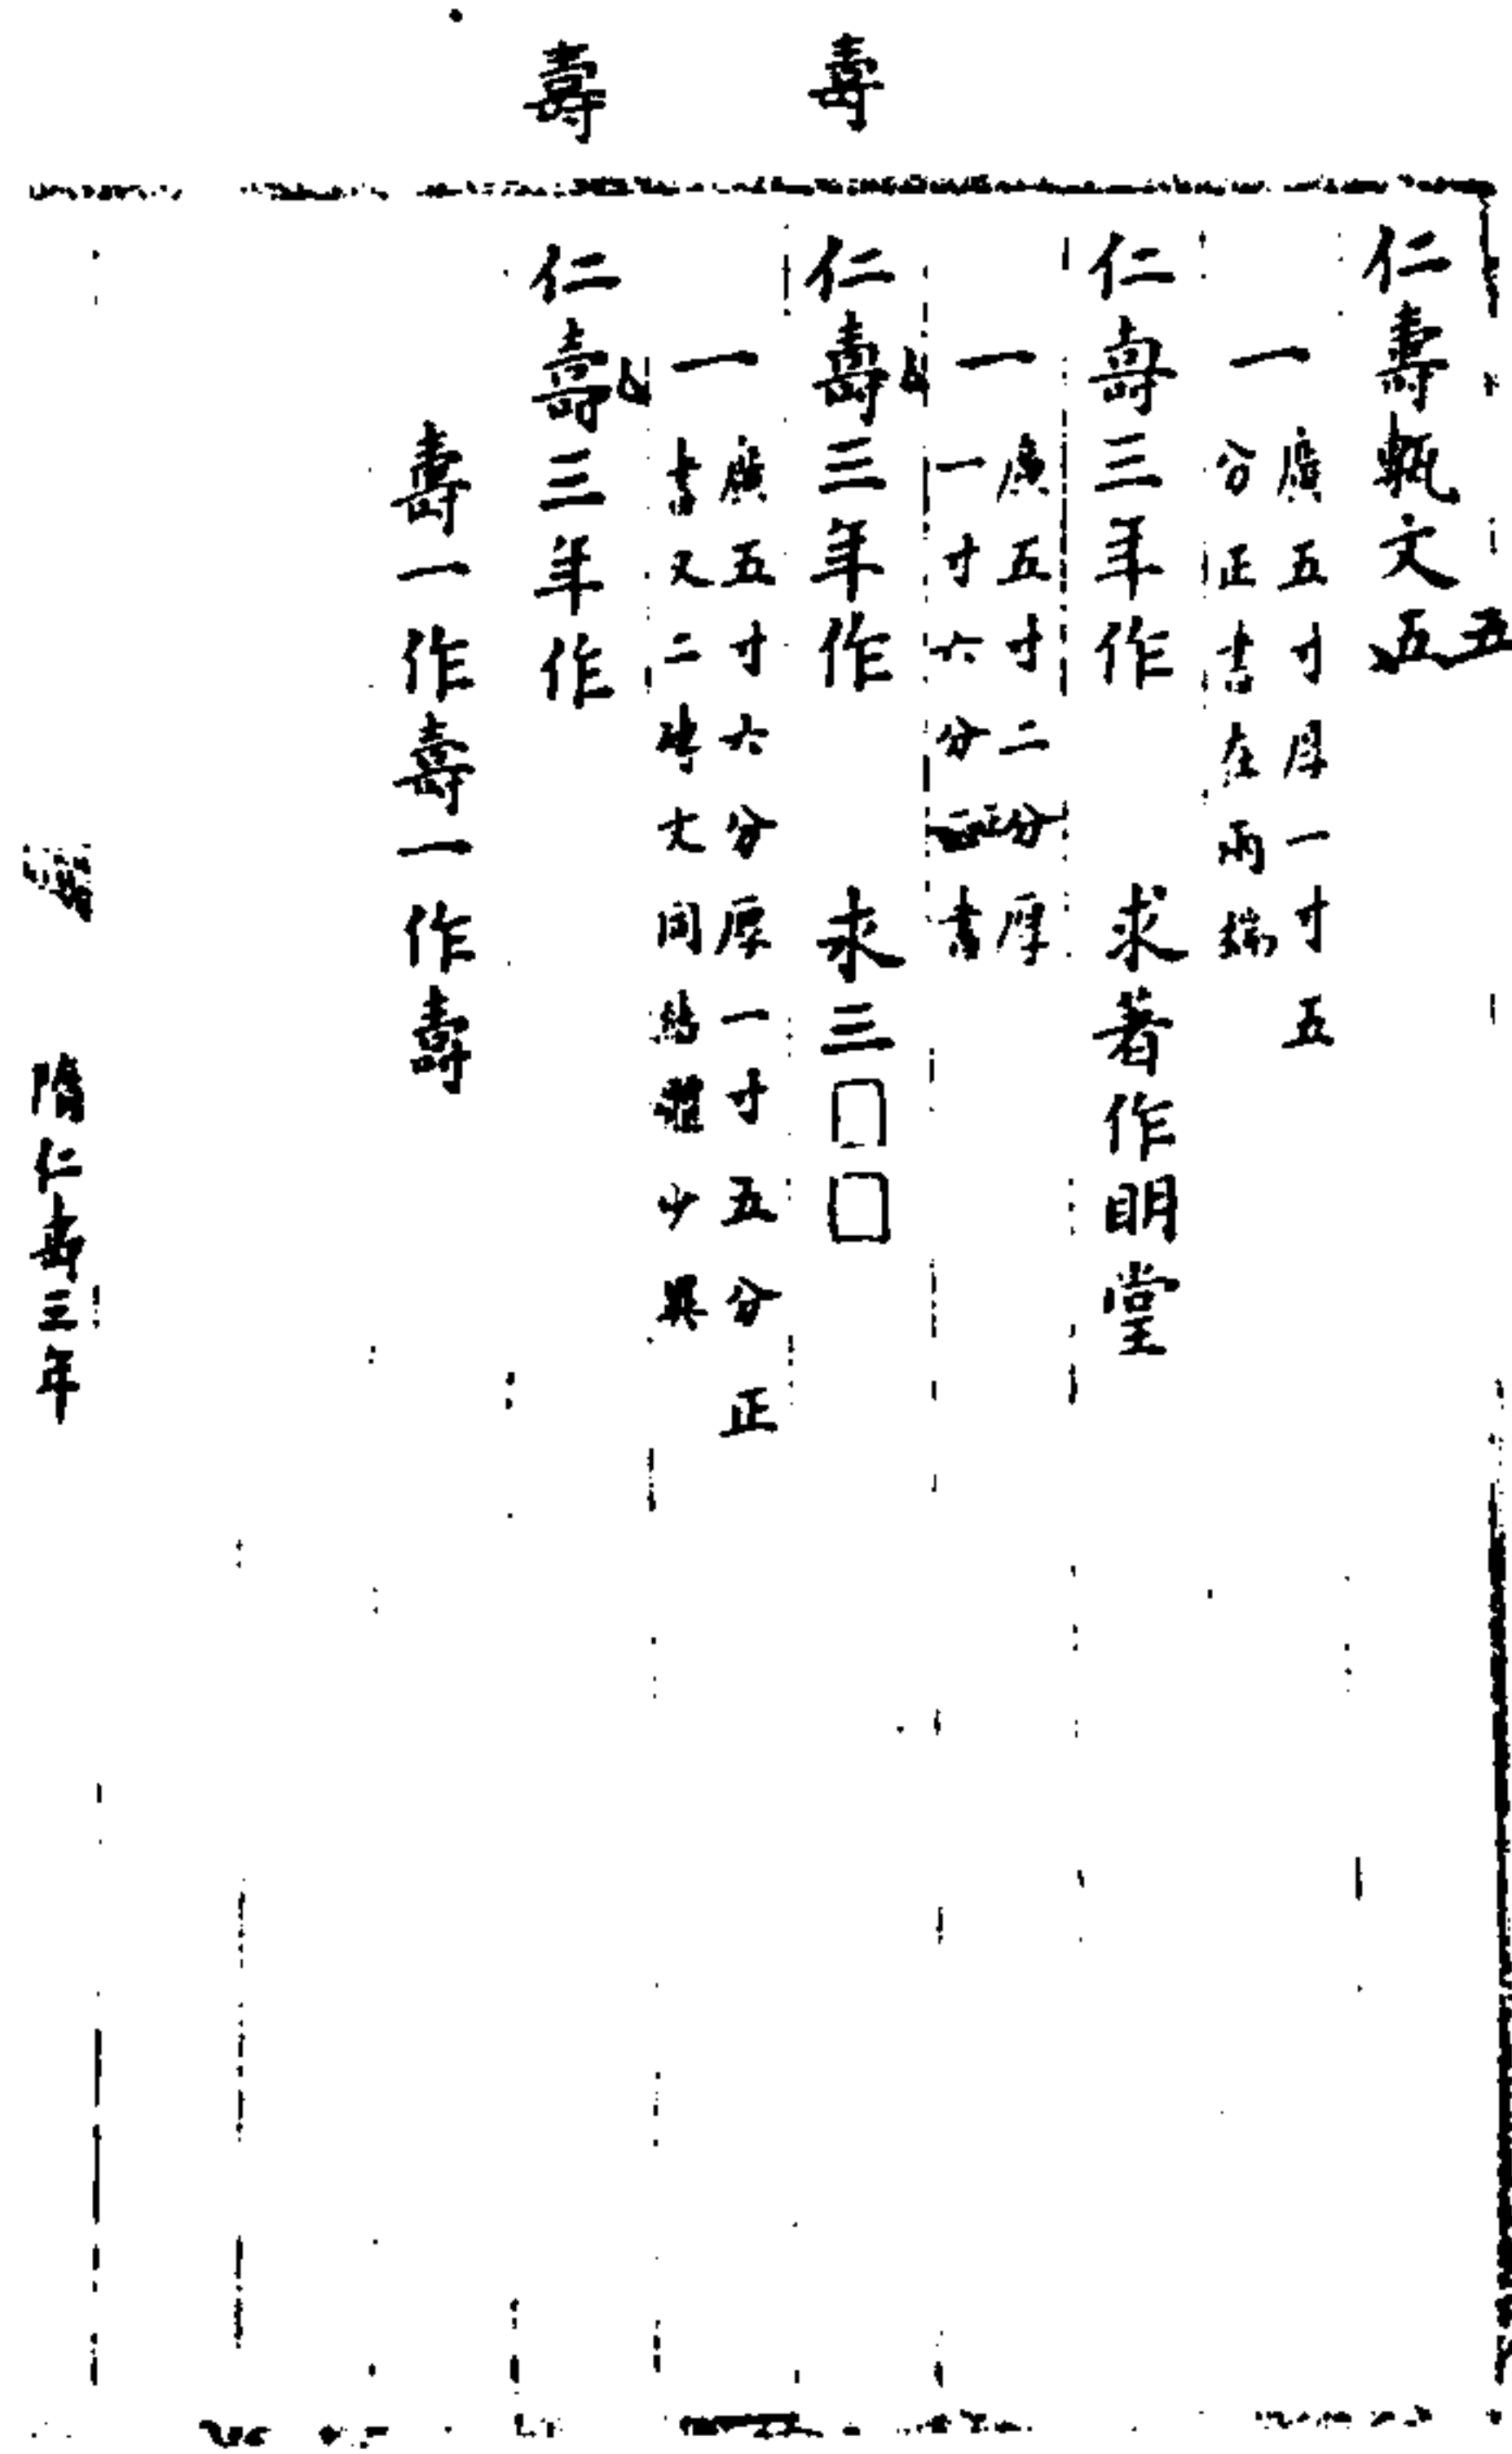 壽
壽
仁壽甎文五
五
一
廣五寸厚一寸五
分正書在兩端
仁壽三年作 求著作明堂
一
廣五寸二分厚
一寸六分 書
仁壽三年作 求三□□
一
廣五寸六分厚一寸五分正
書又二甎文同結體少異
仁壽三年作
壽一作壽一作壽
隋仁壽三年